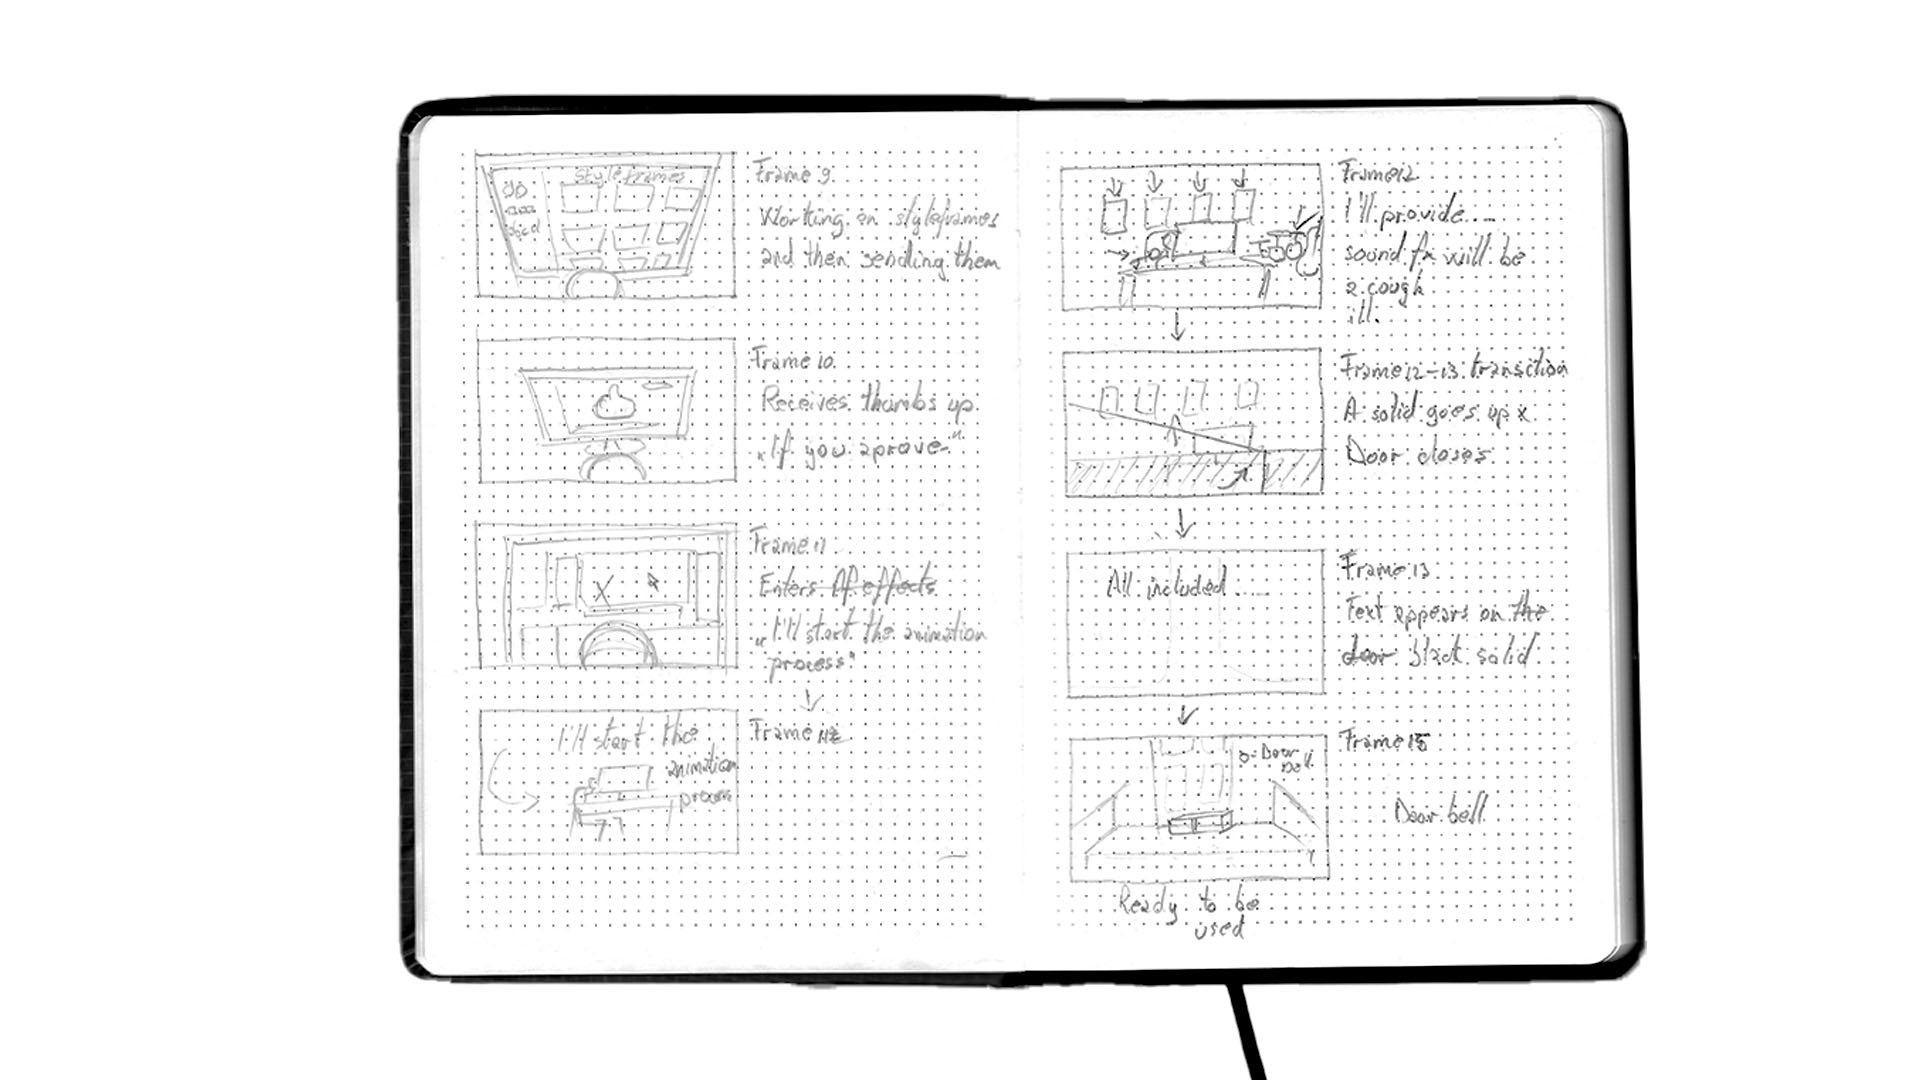 Styleframes
Frame 9
Working on styleframes
and then sending them
Frame 10
Receives thumbs up
"If you aprove"
Frame 11
Enters Af effects
"I'll start the animation
process"
I'll start the
animation
process
Frame 12
Frame 12
I'll provide....
sound fx will be
a cough
ill.
Frame 12-13 transition
A solid goes up x
Door closes
All included.....
Frame 13
Text appears on the
door black solid
Door
bell
Frame 15
Door bell
Ready to be
used